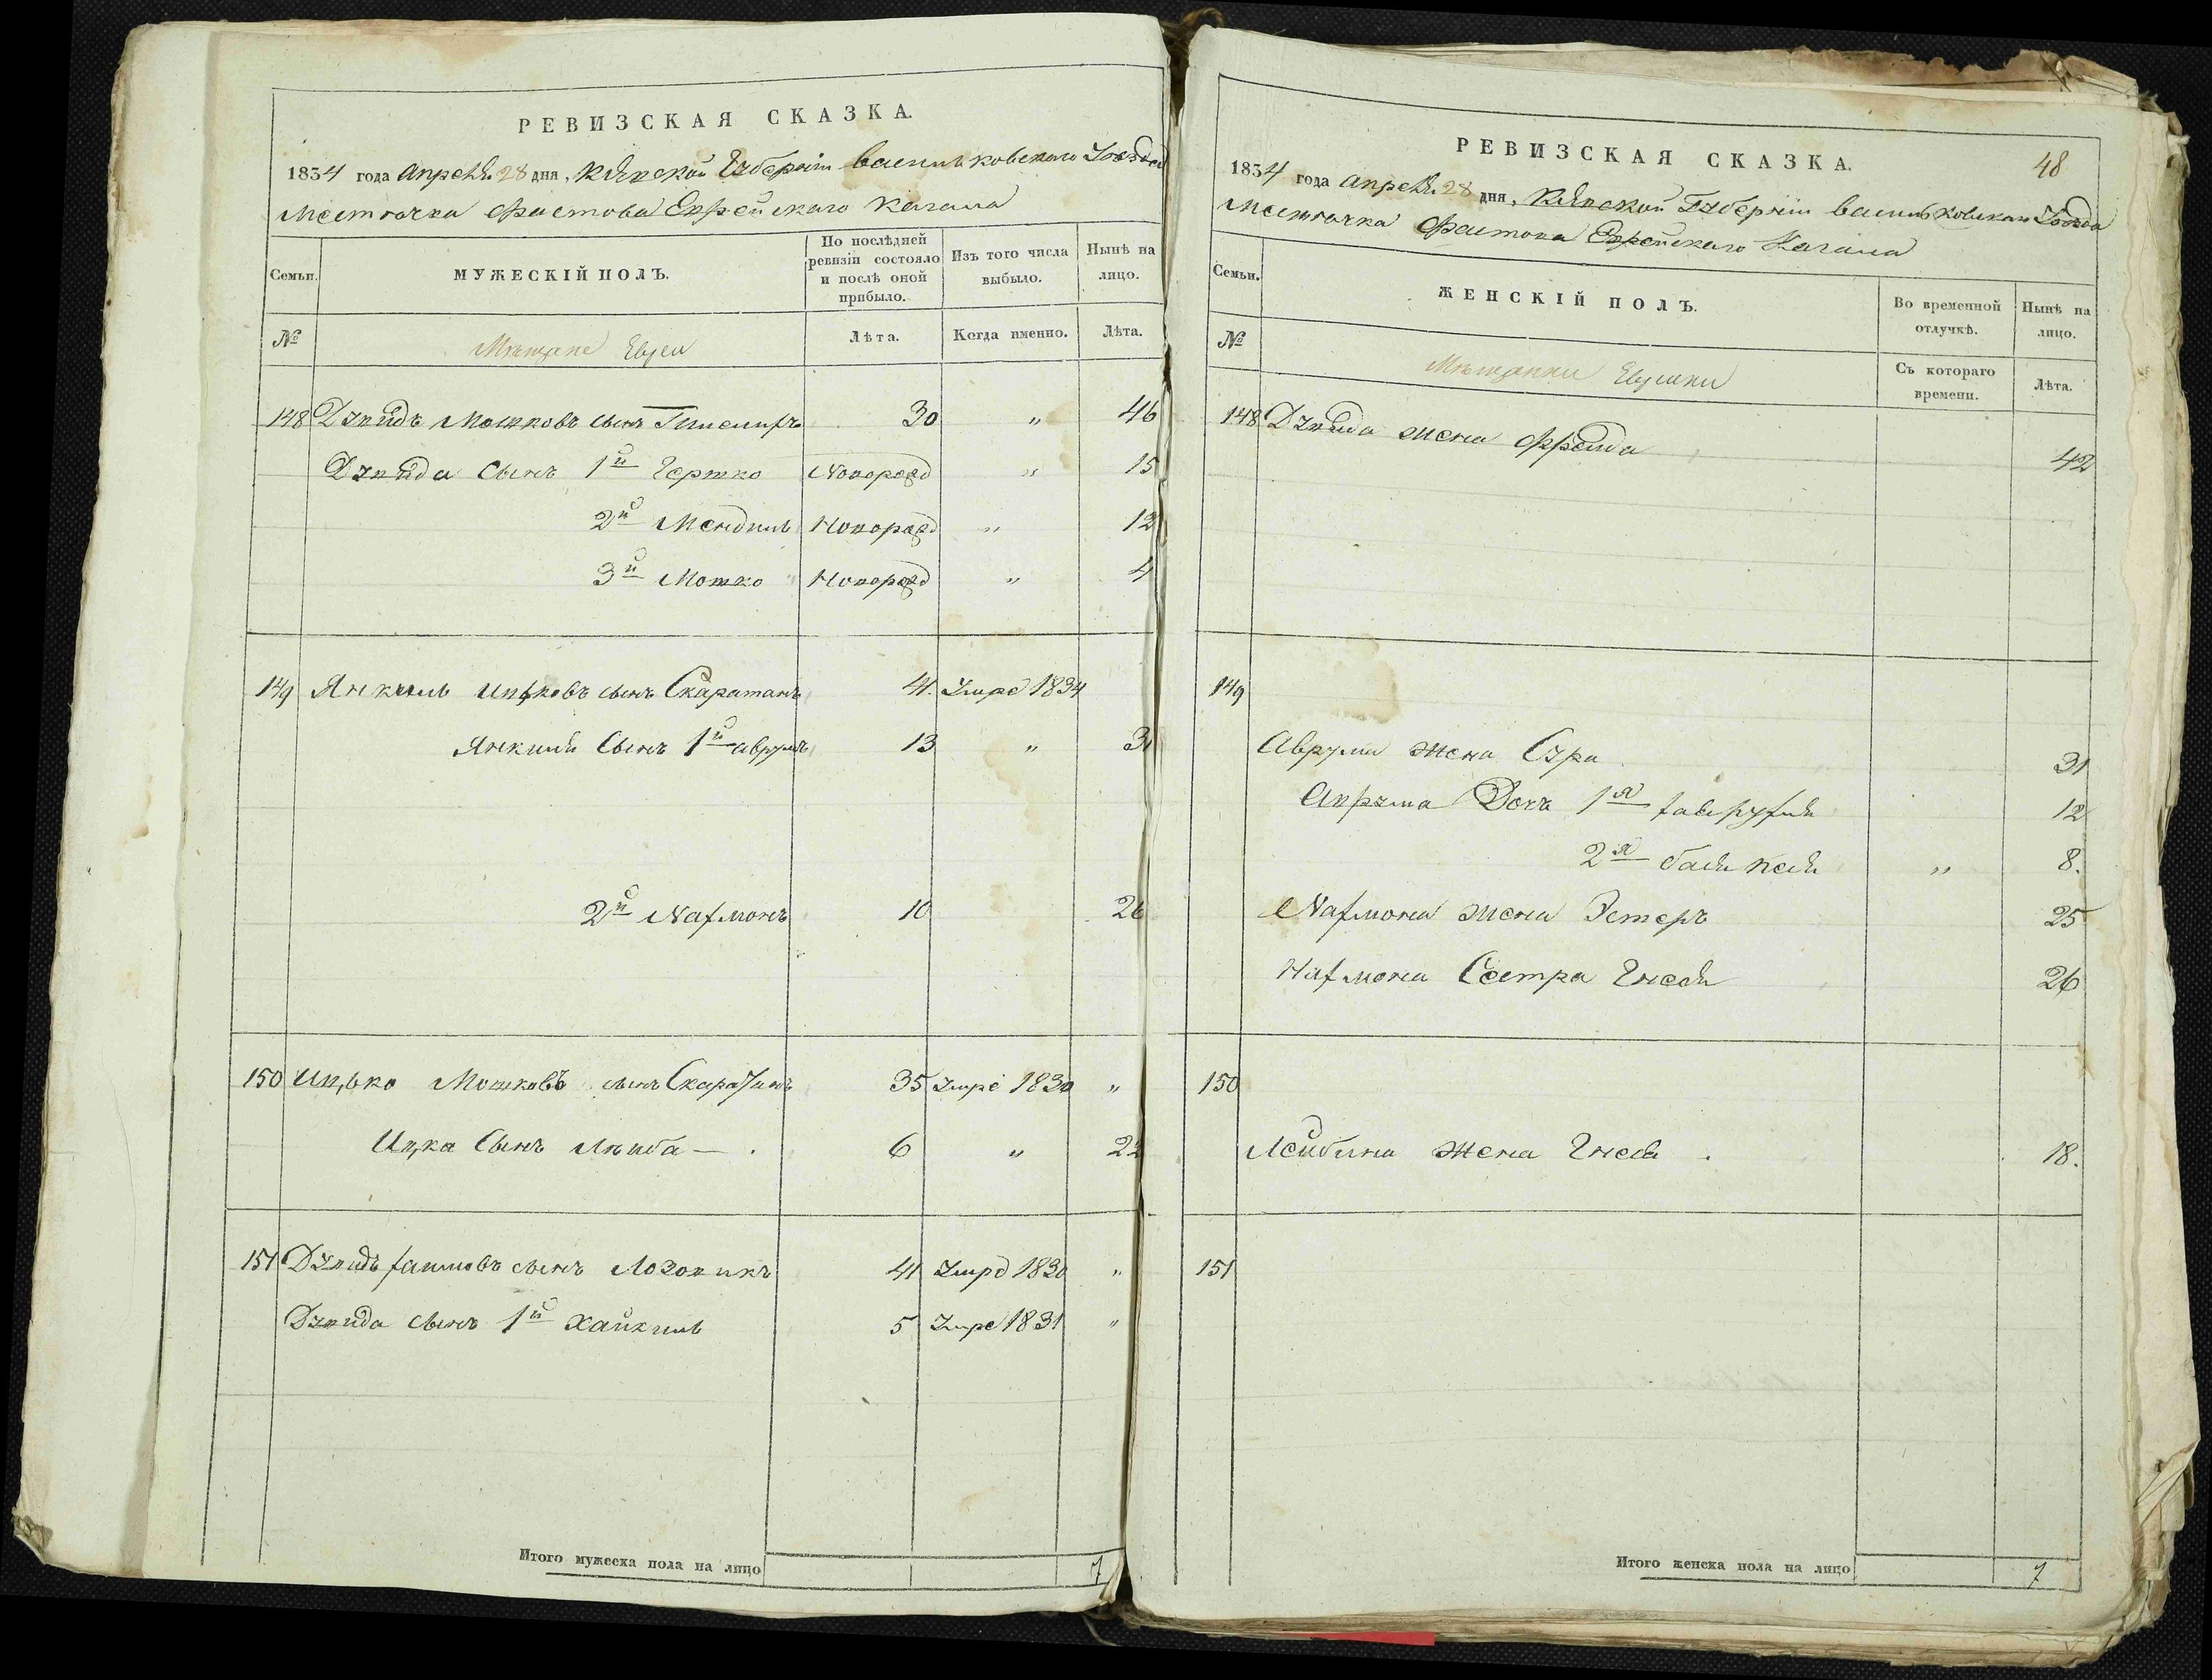 РЕВИЗСКАЯ СКАЗКА.
1834 года Апреля 28 дня, Кіевской Губерніи Васильковского Уезда
Местечка Фастова Еврейскаго Кагала
Семьи. МУЖЕСКІЙ ПОЛЪ. По послѣдней ревизіи состояло и послѣ оной прибыло. Изъ того числа выбыло. Нынѣ на лицо.
№ Мѣщане Евреи Лѣта. Когда именно. Лѣта.
148 Дувидъ Мошковъ сынъ 30 " 46
Дувида Сынъ 1й Гершко Новорожд " 15
2й Мендиль Новорожд " 12
3й Мошко Новорожд " 4
149 Янкель Ицковъ сынъ Скаратанъ 41. Умре 1834
Янкиля Сынъ 1й Аврумъ 13 " 31
2й Нахмонъ 10 26
150 Ицько Мошковъ сынъ 35 Умре 1830 "
Ицка Сынъ Лейба — 6 " 22
151 Дувидъ Хаимовъ сынъ Лозовикъ 41 Умре 1830 "
Дувида сынъ 1й Хайкиль 5 Умре 1831 "
Итого мужеска пола на лицо 7
РЕВИЗСКАЯ СКАЗКА. 48
1834 года Апреля 28 дня, Кіевской Губерніи Васильковскаго Уезда
Местечка Фастова Еврейскаго Кагала
Семьи. ЖЕНСКІЙ ПОЛЪ. Во временной отлучкѣ. Нынѣ на лицо.
№ Мѣщанки Еврейки Съ котораго времени. Лѣта.
148 Дувида жена Фрейда 42
149
Аврума жена Сура 31
Аврума Дочь 1я 12
2я " 8.
Нахмона жена Эстеръ 25
Нахмона Сестра Гнеся 26
150
Лейбина жена Гнеся 18.
151
Итого женска пола на лицо 7